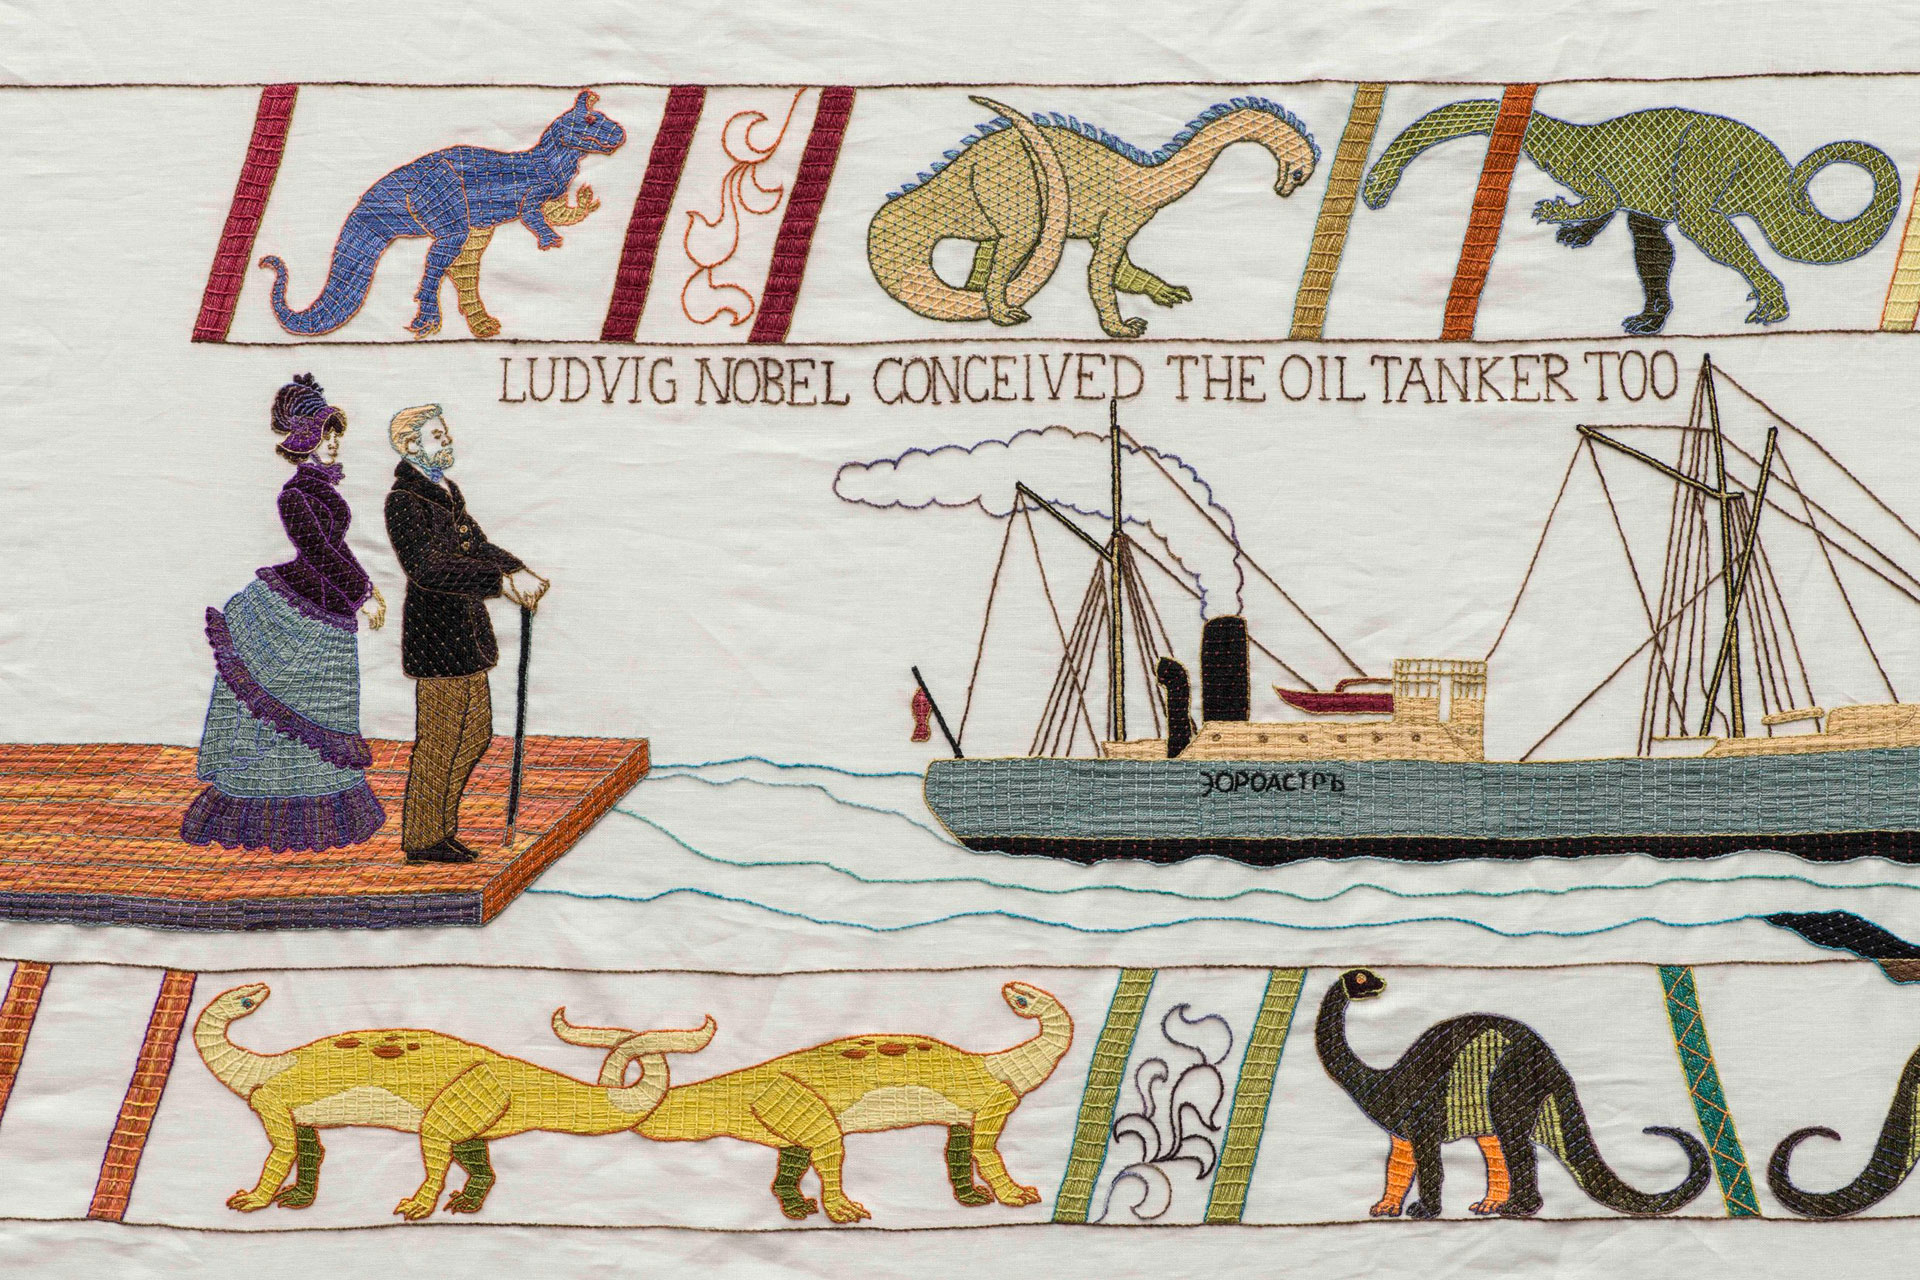 LUDVIG NOBEL CONCEIVED THE OIL TANKER TOO
ЗОРОАСТРЪ